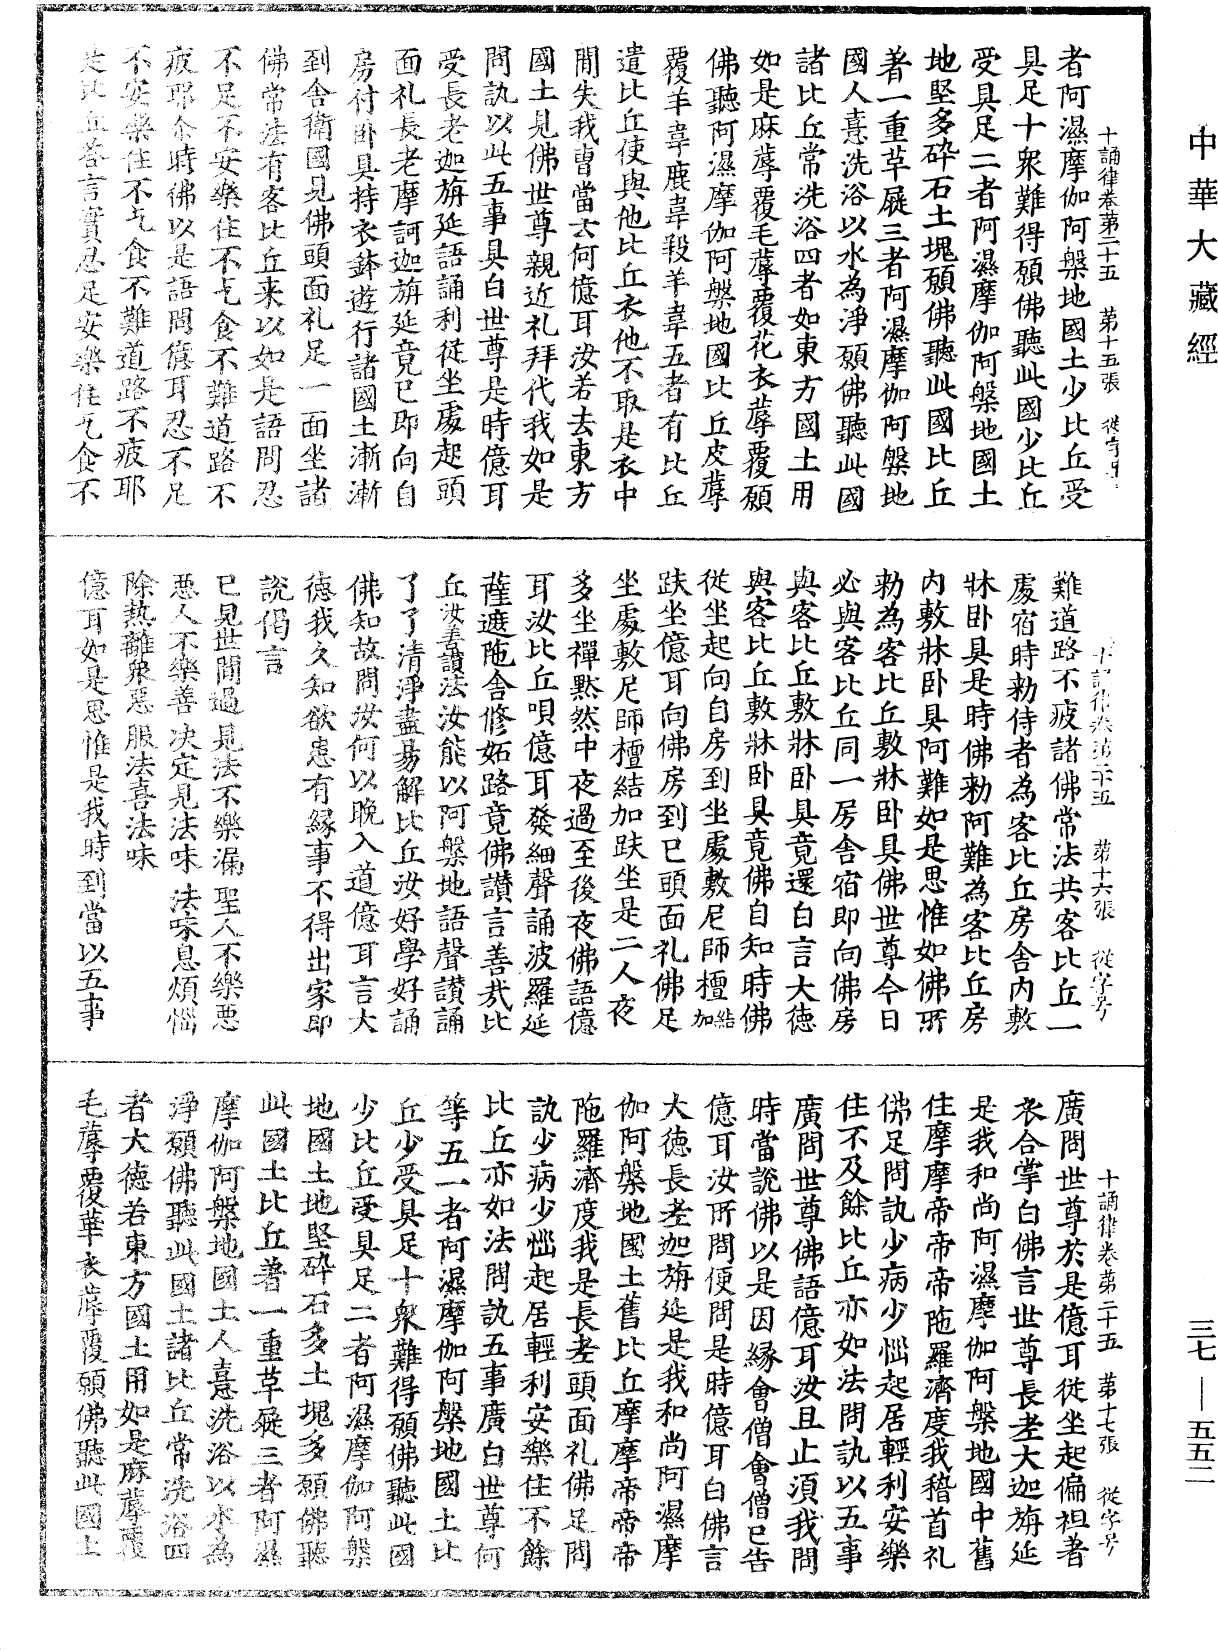 中華大藏經
十誦律卷第二十五　第十五張　從字号
者阿濕摩伽阿槃地國土少比丘受
具足十衆難得願佛聽此國少比丘
受具足二者阿濕摩伽阿槃地國土
地堅多碎石土塊願佛聽此國比丘
著一重革屣三者阿濕摩伽阿槃地
國人憙洗浴以水為淨願佛聽此國
諸比丘常洗浴四者如東方國土用
如是麻蓐覆毛蓐覆花衣蓐覆願
佛聽阿濕摩伽阿槃地國比丘皮蓐
覆羊韋鹿韋羖羊韋五者有比丘
遣比丘使與他比丘衣他不取是衣中
間失我曹當云何億耳汝若去東方
國土見佛世尊親近礼拜代我如是
問訊以此五事具白世尊是時億耳
受長老迦旃延語誦利從坐處起頭
面礼長老摩訶迦旃延竟已即向自
房付卧具持衣鉢遊行諸國土漸漸
到舍衛國見佛頭面礼足一面坐諸
佛常法有客比丘来以如是語問忍
不足不安樂住不乞食不難道路不
疲耶尒時佛以是語問億耳忍不足
不安樂住不乞食不難道路不疲耶
是比丘荅言實忍足安樂住乞食不
十誦律卷第二十五　第十六張　從字号
難道路不疲諸佛常法共客比丘一
處宿時勑侍者為客比丘房舍内敷
牀卧具是時佛勑阿難為客比丘房
内敷牀卧具阿難如是思惟如佛所
勑為客比丘敷牀卧具佛世尊今日
必與客比丘同一房舍宿即向佛房
與客比丘敷牀卧具竟還白言大徳
與客比丘敷牀卧具竟佛自知時佛
從坐起向自房到坐處敷尼師檀結加
趺坐億耳向佛房到已頭面礼佛足
坐處敷尼師檀結加趺坐是二人夜
多坐禪黙然中夜過至後夜佛語億
耳汝比丘唄億耳發細聲誦波羅延
薩遮陁舍修妬路竟佛讃言善哉比
丘汝善讃法汝能以阿槃地語聲讃誦
了了清淨盡易解比丘汝好學好誦
佛知故問汝何以晚入道億耳言大
徳我久知欲患有緣事不得出家即
説偈言
已見世間過　見法不樂漏　聖人不樂惡
惡人不樂善　決定見法味　法味息煩惱
除熱離衆惡　服法喜法味
億耳如是思惟是我時到當以五事
十誦律卷第二十五　第十七張　從字号
廣問世尊於是億耳從坐起偏袒著
衣合掌白佛言世尊長老大迦旃延
是我和尚阿濕摩伽阿槃地國中舊
住摩摩帝帝帝陁羅濟度我稽首礼
佛足問訊少病少惱起居輕利安樂
住不及餘比丘亦如法問訊以五事
廣問世尊佛語億耳汝且止須我問
時當説佛以是因緣會僧會僧已告
億耳汝所問便問是時億耳白佛言
大徳長老迦旃延是我和尚阿濕摩
伽阿槃地國土舊比丘摩摩帝帝帝
陁羅濟度我是長老頭面礼佛足問
訊少病少惱起居輕利安樂住不餘
比丘亦如法問訊五事廣白世尊何
等五一者阿濕摩伽阿槃地國土比
丘少受具足十衆難得願佛聽此國
少比丘受具足二者阿濕摩伽阿槃
地國土地堅碎石多土塊多願佛聽
此國土比丘著一重革屣三者阿濕
摩伽阿槃地國土人憙洗浴以水為
淨願佛聽此國土諸比丘常洗浴四
者大徳若東方國土用如是麻蓐覆
毛蓐覆華衣蓐覆願佛聽此國土
三七—五五二